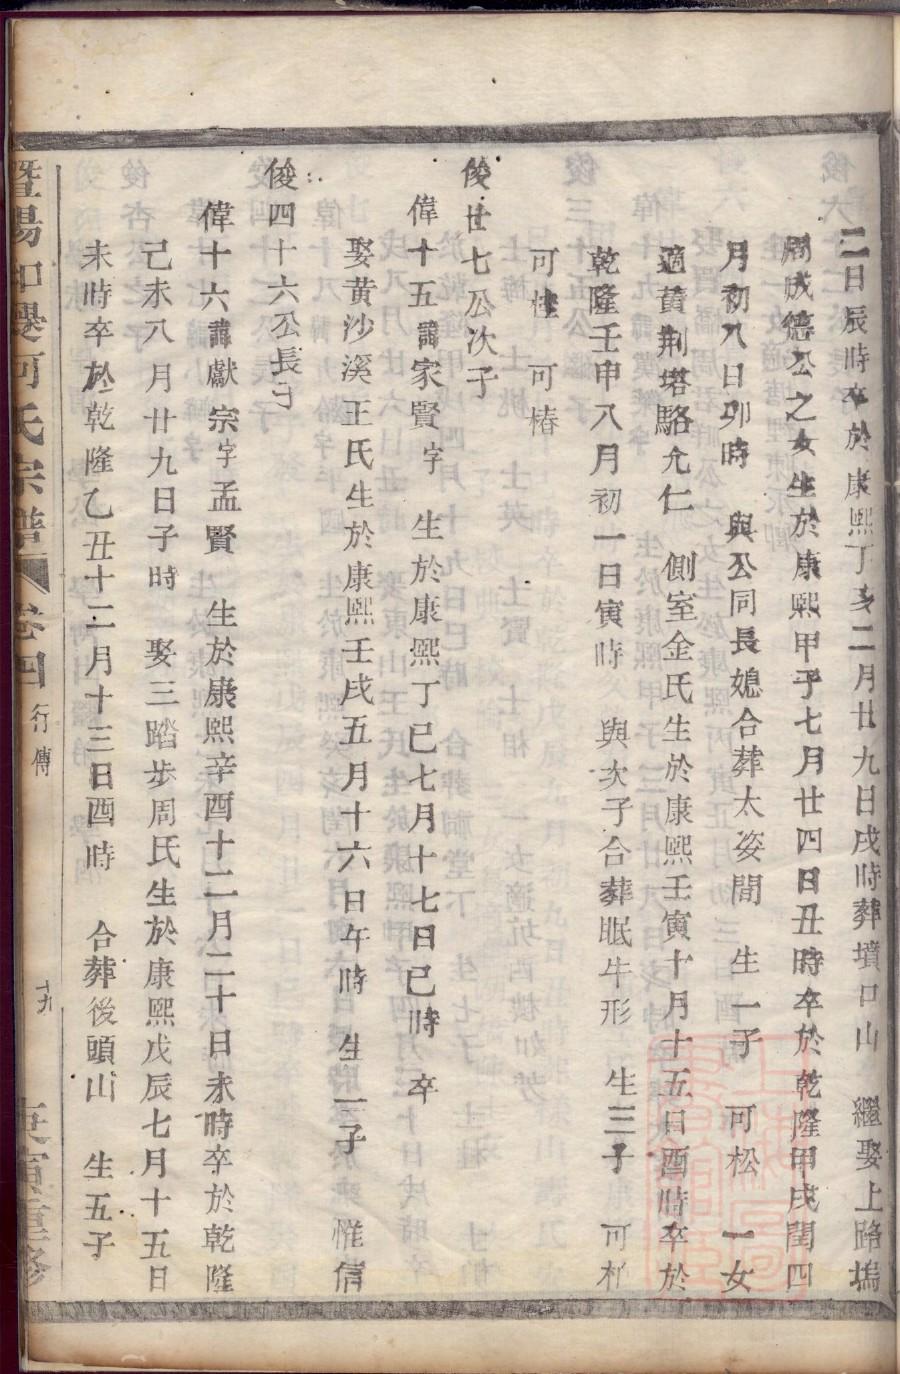 二日辰時卒於康熙丁亥二月廿九日戌時葬墳口山　繼娶上路塢
周成德公之女生於康熙甲子七月廿四日丑時卒於乾隆甲戌閏四
月初八日卯時　與公同長媳合葬太姿閒　生一子　可松　一女
適黄荆塔駱允仁　側室金氏生於康熙壬寅十月十五日酉時卒於
乾隆壬申八月初一日寅時　與次子合葬眠牛形　生三子　可析
可桂　可椿
俊廿七公次子
偉十五諱家賢字　生於康熙丁巳七月十七日巳時　卒
娶黄沙溪王氏生於康熙壬戌五月十六日午時　生一子　惟信
俊四十六公長子
偉十六諱獻宗字孟賢　生於康熙辛酉十二月二十日未時卒於乾隆
己未八月廿九日子時　娶三踏步周氏生於康熙戊辰七月十五日
未時卒於乾隆乙丑十二月十三日酉時　合葬後頭山　生五子
暨陽　河氏宗譜　卷四　行傳　十九　寅重修